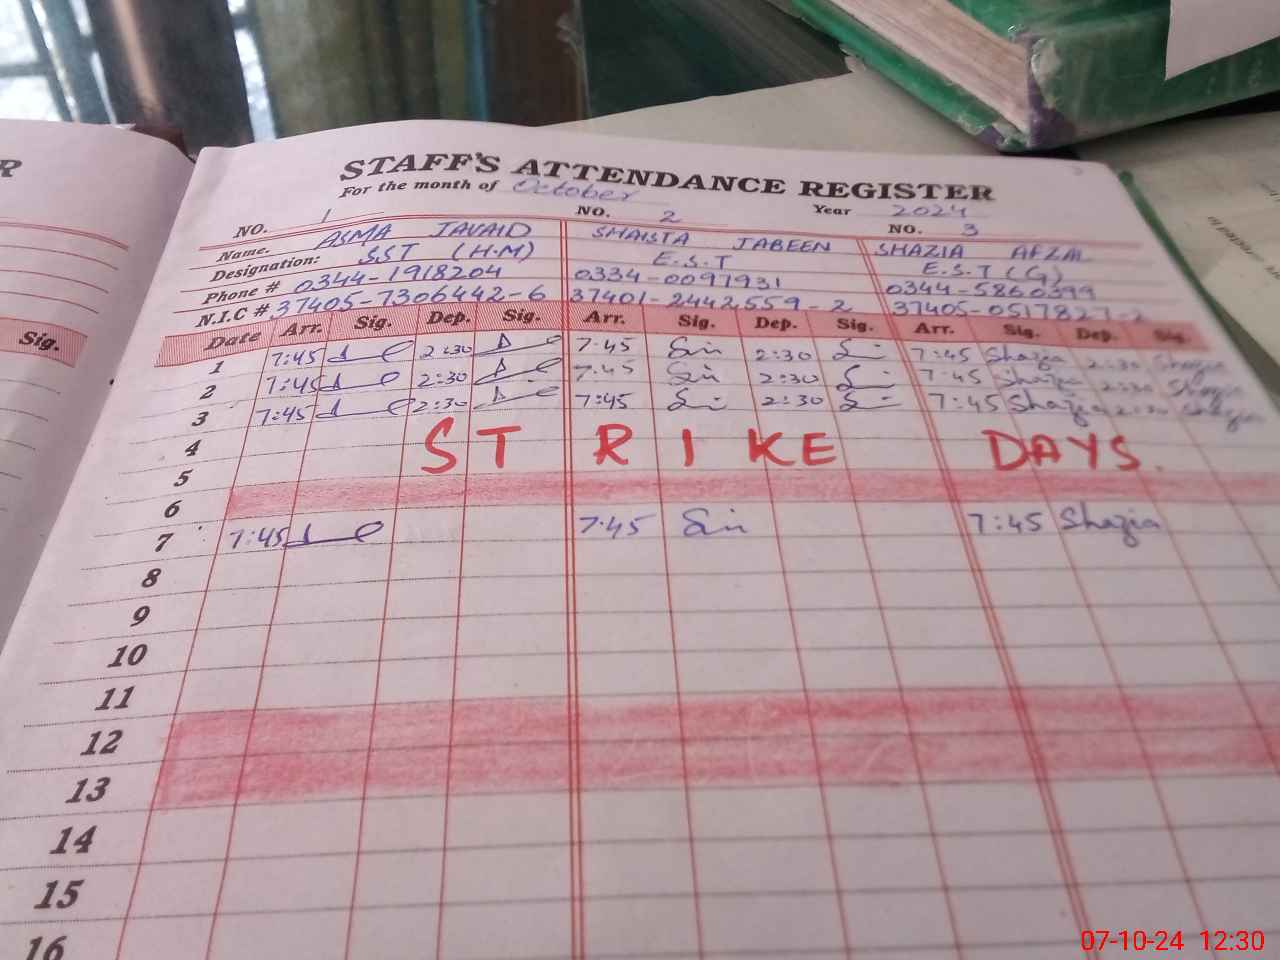 R
STAFF'S ATTENDANCE REGISTER
For the month of October Year 2024
NO. 1 NO. 2 NO. 3
Name. ASMA JAVAID SHAISTA JABEEN SHAZIA AFZAL
Designation: SST (H.M) E.S.T E.S.T (G)
Phone # 0344-1918204 0334-0097931 0344-5860399
N.I.C # 37405-7306442-6 37401-2442559-2 37405-0517827-2
Sig.
Date Arr. Sig. Dep. Sig. Arr. Sig. Dep. Sig. Arr. Sig. Dep. Sig.
1 7:45 2:30 7:45 2:30 7:45 Shazia 2:30 Shazia
2 7:45 2:30 7:45 2:30 7:45 Shazia 2:30 Shazia
3 7:45 2:30 7:45 2:30 7:45 Shazia 2:30 Shazia
4 STRIKE DAYS.
5
6
7 7:45 7:45 7:45 Shazia
8
9
10
11
12
13
14
15
16
07-10-24 12:30